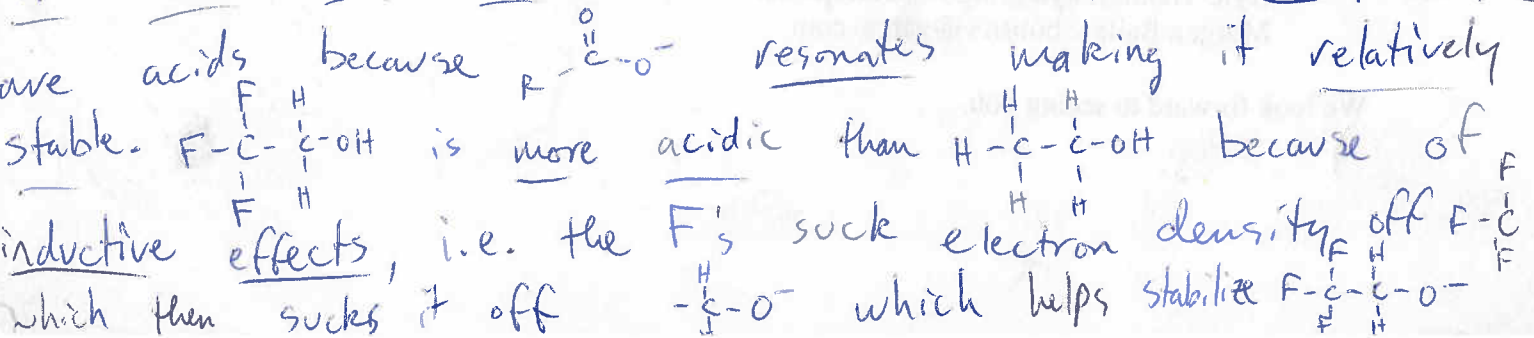 are acids because R-C(=O)-O⁻ resonates making it relatively
stable. F-C(F)(F)-C(H)(H)-OH is more acidic than H-C(H)(H)-C(H)(H)-OH because of
inductive effects, i.e. the F's suck electron density off F-C(F)(F)
which then sucks it off -C(H)-O⁻ which helps stabilize F-C(F)(F)-C(H)(H)-O⁻